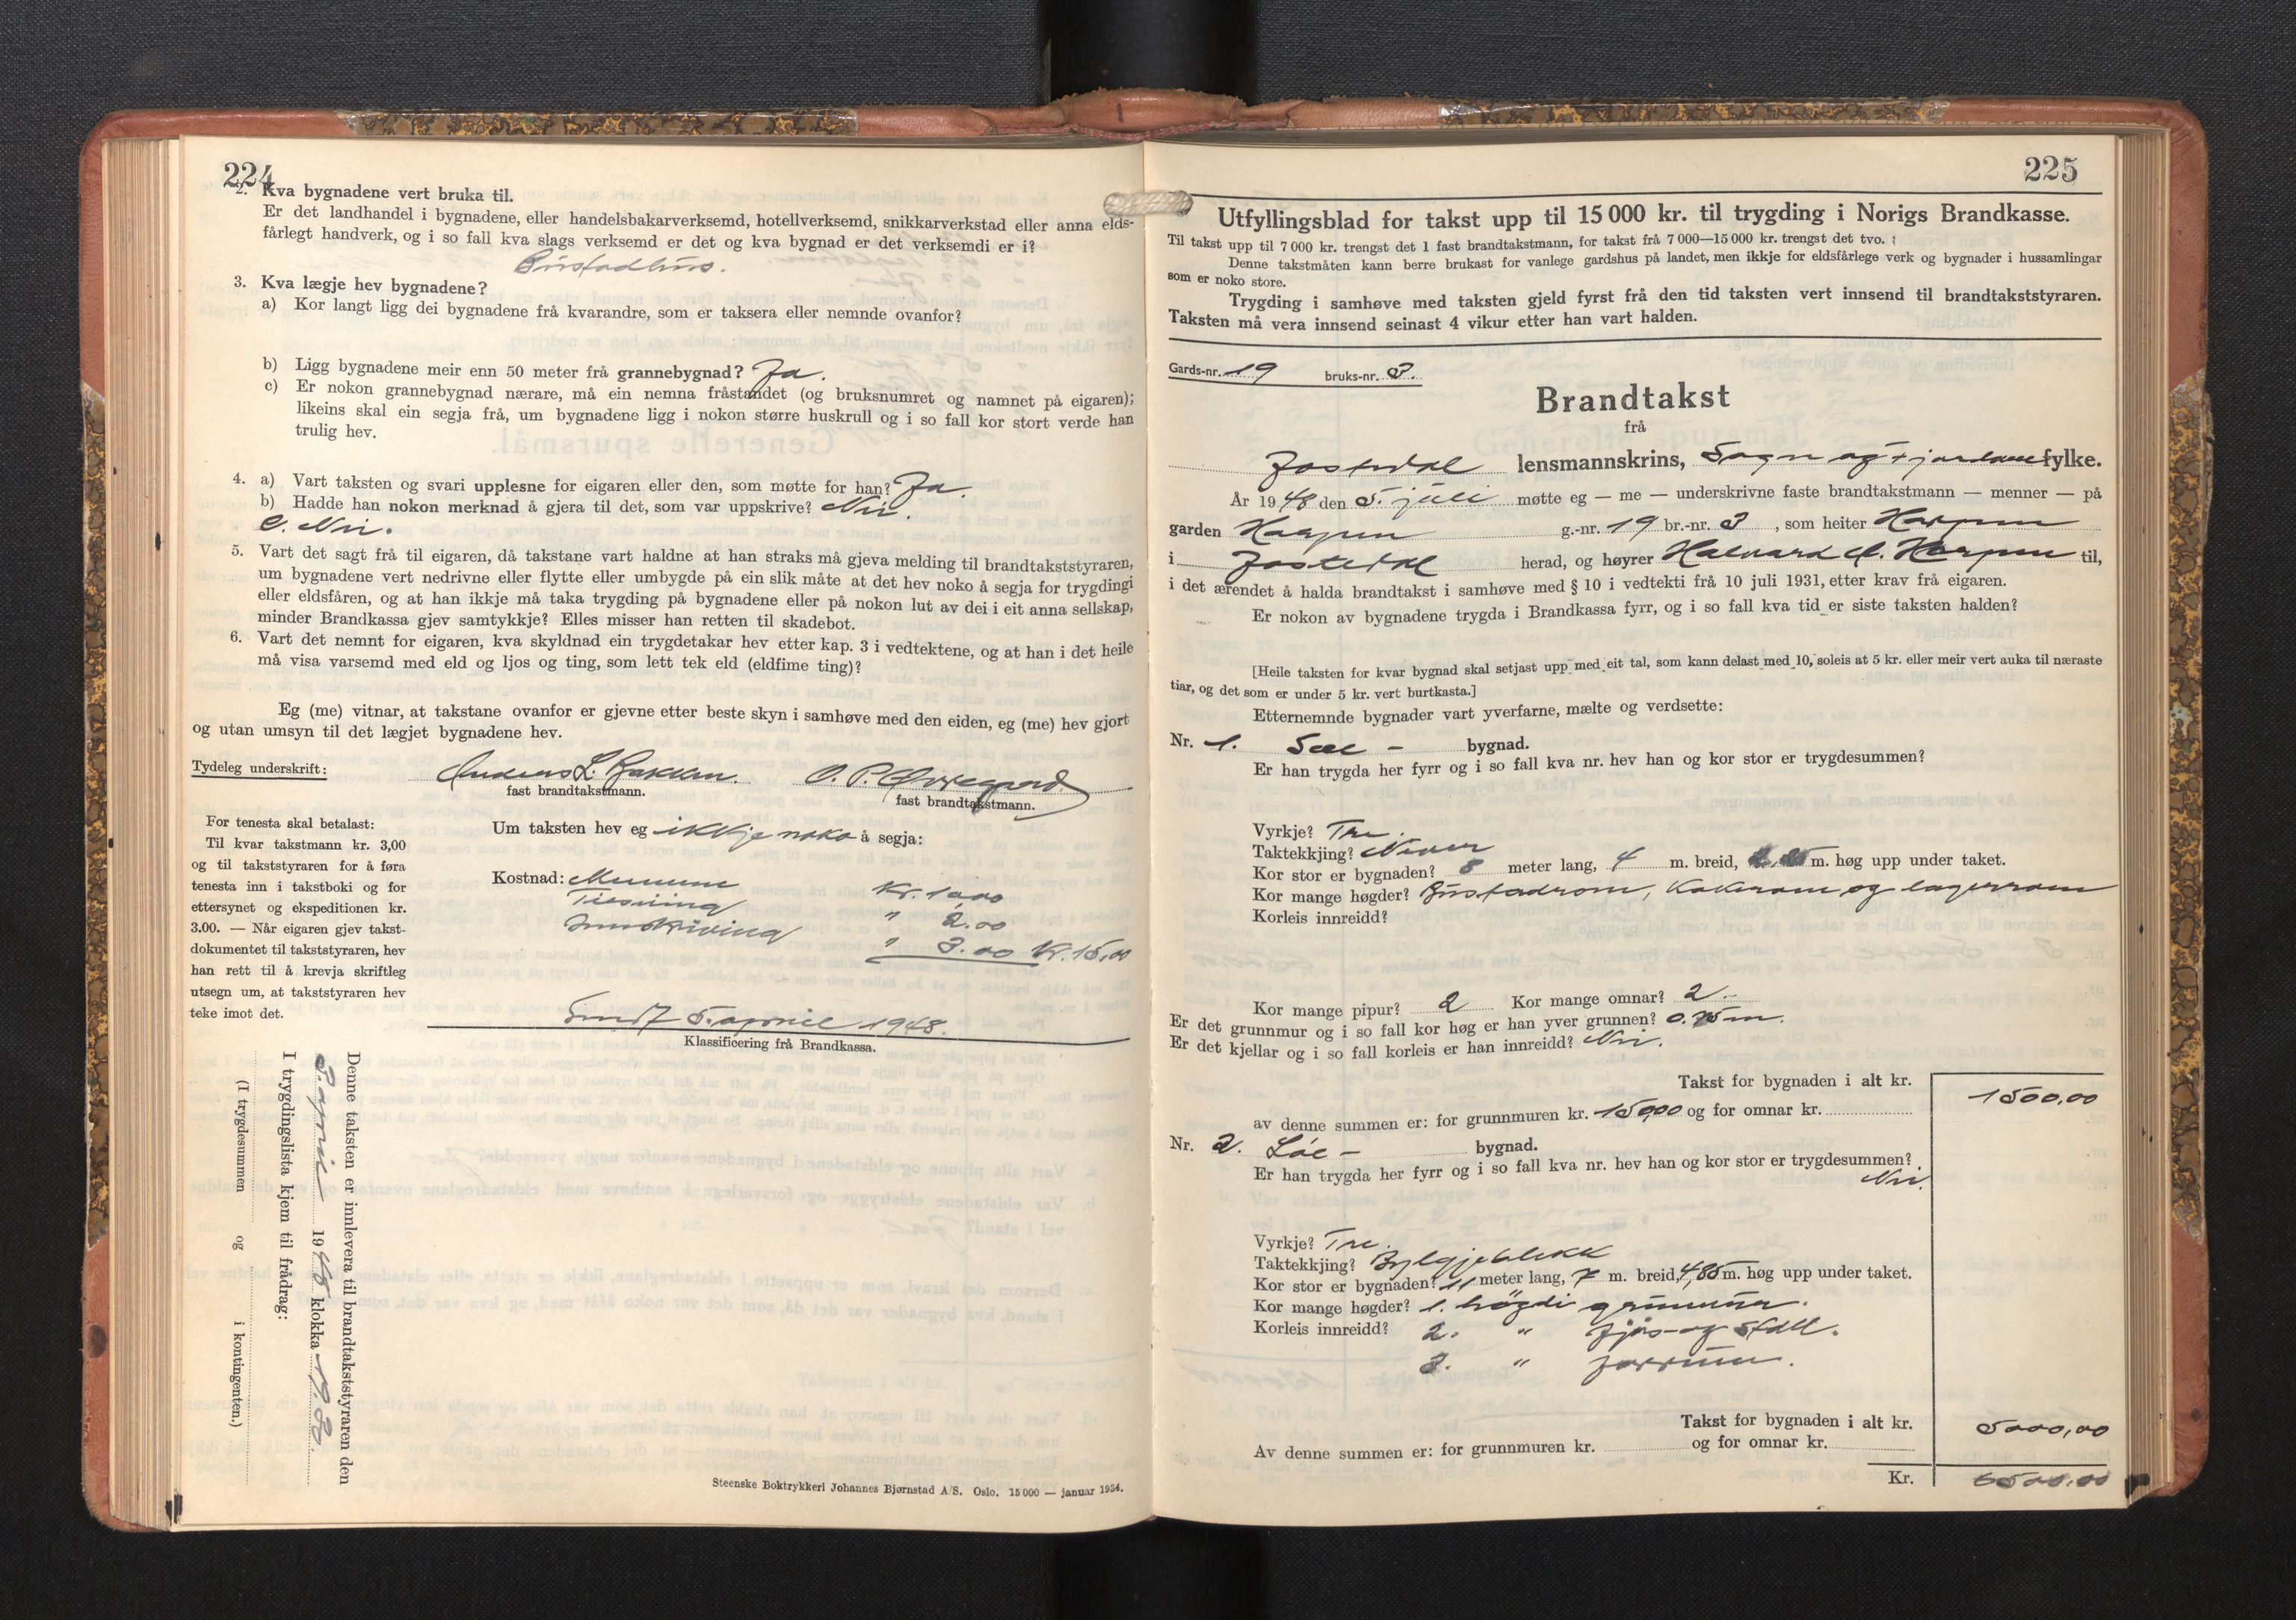 224
2. Kva bygnadene vert bruka til.
Er det landhandel i bygnadene, eller handelsbakarverksemd, hotellverksemd, snikkarverkstad eller anna elds-
fårlegt handverk, og i so fall kva slags verksemd er det og kva bygnad er det verksemdi er i?
Bustadhus.
3. Kva lægje hev bygnadene?
a) Kor langt ligg dei bygnadene frå kvarandre, som er taksera eller nemnde ovanfor?
b) Ligg bygnadene meir enn 50 meter frå grannebygnad? Ja.
c) Er nokon grannebygnad nærare, må ein nemna fråstandet (og bruksnumret og namnet på eigaren);
likeins skal ein segja frå, um bygnadene ligg i nokon større huskrull og i so fall kor stort verde han
trulig hev.
4. a) Vart taksten og svari upplesne for eigaren eller den, som møtte for han? Ja.
b) Hadde han nokon merknad å gjera til det, som var uppskrive? Nei.
c. Nei.
5. Vart det sagt frå til eigaren, då takstane vart haldne at han straks må gjeva melding til brandtakststyraren,
um bygnadene vert nedrivne eller flytte eller umbygde på ein slik måte at det hev noko å segja for trygdingi
eller eldsfåren, og at han ikkje må taka trygding på bygnadene eller på nokon lut av dei i eit anna sellskap,
minder Brandkassa gjev samtykkje? Elles misser han retten til skadebot.
6. Vart det nemnt for eigaren, kva skyldnad ein trygdetakar hev etter kap. 3 i vedtektene, og at han i det heile
må visa varsemd med eld og ljos og ting, som lett tek eld (eldfime ting)?
Eg (me) vitnar, at takstane ovanfor er gjevne etter beste skyn i samhøve med den eiden, eg (me) hev gjort
og utan umsyn til det lægjet bygnadene hev.
Tydeleg underskrift: Anders L. Bakken. O. P. Øvregard.
fast brandtakstmann. fast brandtakstmann.
For tenesta skal betalast:
Til kvar takstmann kr. 3,00
og til takststyraren for å føra
tenesta inn i takstboki og for
ettersynet og ekspeditionen kr.
3.00. — Når eigaren gjev takst-
dokumentet til takststyraren, hev
han rett til å krevja skriftleg
utsegn um, at takststyraren hev
teke imot det.
Um taksten hev eg ikkje noko å segja:
Kostnad: Mennene Kr. 10,00
" 2.00
Innskriving " 3.00 Kr. 15,00
Sendt 5. april 1948.
Klassificering frå Brandkassa.
Denne taksten er innlevera til brandtakststyraren den
3. april 1948 klokka
I trygdingslista kjem til frådrag:
(I trygdesummen og i kontingenten.)
Steenske Boktrykkeri Johannes Bjørnstad A/S. Oslo. 15 000 — januar 1934.
225
Utfyllingsblad for takst upp til 15 000 kr. til trygding i Norigs Brandkasse.
Til takst upp til 7 000 kr. trengst det 1 fast brandtakstmann, for takst frå 7 000—15 000 kr. trengst det tvo.
Denne takstmåten kann berre brukast for vanlege gardshus på landet, men ikkje for eldsfårlege verk og bygnader i hussamlingar
som er noko store.
Trygding i samhøve med taksten gjeld fyrst frå den tid taksten vert innsend til brandtakststyraren.
Taksten må vera innsend seinast 4 vikur etter han vart halden.
Gards-nr. 19 bruks-nr. 3.
Brandtakst
frå
Jostedal lensmannskrins, Sogn og Fjordane fylke.
År 1948 den 5. juli møtte eg — me — underskrivne faste brandtakstmann — menner — på
garden Haugen g.-nr. 19 br.-nr. 3, som heiter Haugen
i Jostedal herad, og høyrer Halvard til,
i det ærendet å halda brandtakst i samhøve med § 10 i vedtekti frå 10 juli 1931, etter krav frå eigaren.
Er nokon av bygnadene trygda i Brandkassa fyrr, og i so fall kva tid er siste taksten halden?
[Heile taksten for kvar bygnad skal setjast upp med eit tal, som kann delast med 10, soleis at 5 kr. eller meir vert auka til næraste
tiar, og det som er under 5 kr. vert burtkasta.]
Etternemnde bygnader vart yverfarne, mælte og verdsette:
Nr. 1. Sel- bygnad.
Er han trygda her fyrr og i so fall kva nr. hev han og kor stor er trygdesummen?
Vyrkje? Tre.
Taktekkjing? Never
Kor stor er bygnaden? 8 meter lang, 4 m. breid, m. høg upp under taket.
Kor mange høgder? Bustadrom, kokerom og lagerrom
Korleis innreidd?
Kor mange pipur? 2 Kor mange omnar? 2
Er det grunnmur og i so fall kor høg er han yver grunnen? 0.75 m.
Er det kjellar og i so fall korleis er han innreidd? Nei.
Takst for bygnaden i alt kr. 1500,00
av denne summen er: for grunnmuren kr. 150,00 og for omnar kr.
Nr. 2. Løe- bygnad.
Er han trygda her fyrr og i so fall kva nr. hev han og kor stor er trygdesummen?
Nei.
Vyrkje? Tre.
Taktekkjing? Bylgjeblekk
Kor stor er bygnaden? 11 meter lang, 7 m. breid, 4,85 m. høg upp under taket.
Kor mange høgder? 1. høgdi
Korleis innreidd? 2. " fjøs og stall.
3. " forrum.
Takst for bygnaden i alt kr. 5000,00
Av denne summen er: for grunnmuren kr. og for omnar kr.
Kr. 6500,00